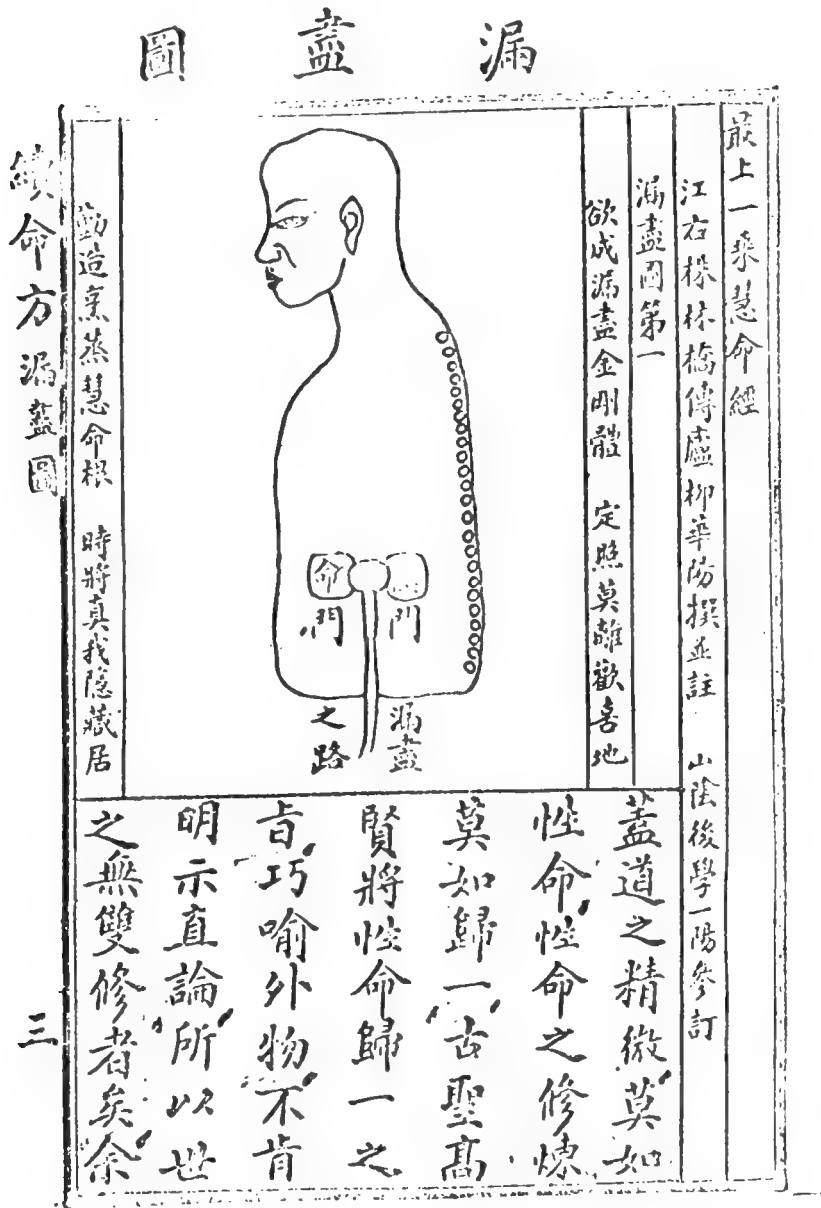 漏盡圖
最上一乘慧命經
江右株林橋傳廬柳華陽撰並註 山陰後學一陽參訂
漏盡圖第一
欲成漏盡金剛體 定照莫離歡喜地
命門
門
漏盡
之路
勤造烹蒸慧命根 時將真我隱藏居
蓋道之精微莫如
性命性命之修煉
莫如歸一古聖高
賢將性命歸一之
旨巧喻外物不肯
明示直論所以世
之無雙修者矣余
續命方漏盡圖
三